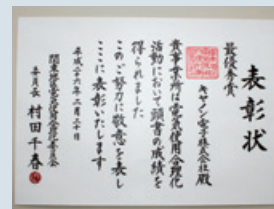 表彰状
最優秀賞
キヤノン電子株式会社殿
貴事業所は電気使用合理化
活動において頭書の成績を
得られました
このご努力に敬意を表し
ここに表彰いたします
平成二十六年二月二十日
関東地区電気使用合理化委員会
委員長 村田千春